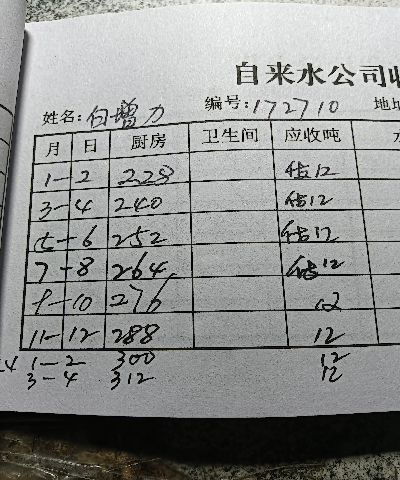 自来水公司收
姓名: 白增力 编号: 172710 地址
月 日 厨房 卫生间 应收吨 水
1-2 228 估12
3-4 240 估12
5-6 252 估12
7-8 264 估12
9-10 276 12
11-12 288 12
1-2 300 12
3-4 312 12